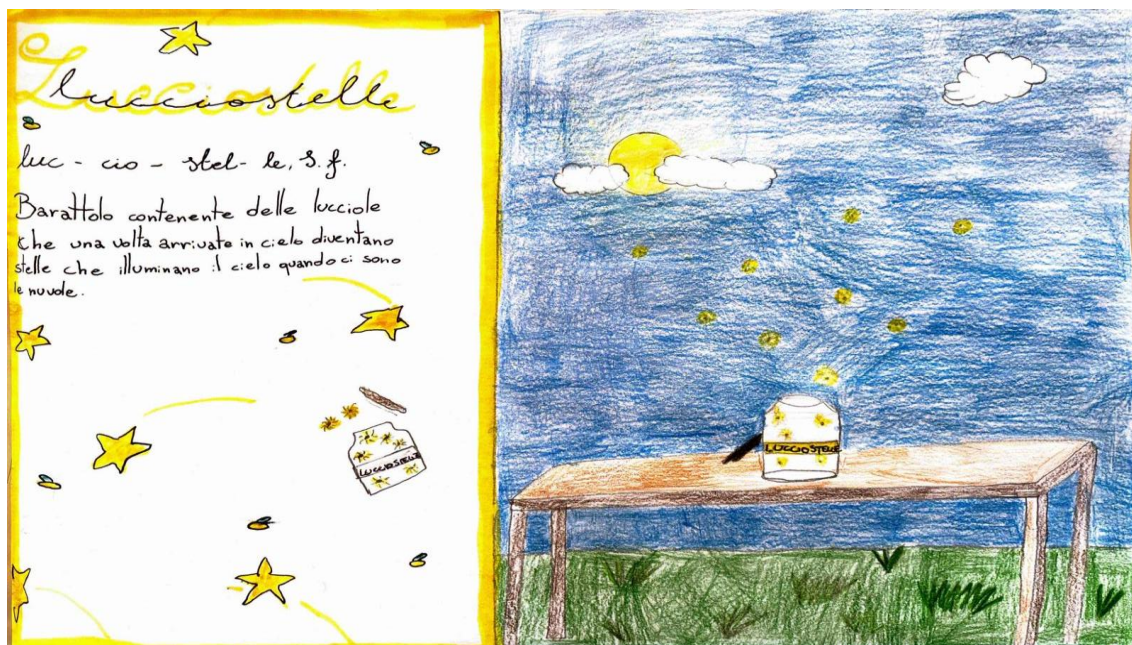 Lucciostelle
luc - cio - stel - le, s.f.
Barattolo contenente delle lucciole
che una volta arrivate in cielo diventano
stelle che illuminano il cielo quando ci sono
le nuvole.
LUCCIOSTELLE
LUCCIOSTELLE